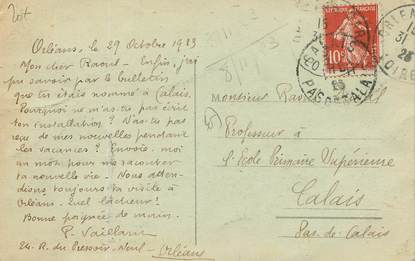 Orléans, le 29 Octobre 1923
Mon cher Raoul - Enfin, j'ai
pu savoir par le bulletin
que tu étais nommé à Calais.
Pourquoi ne m'as-tu pas écrit
ton installation? N'as-tu pas
reçu de mes nouvelles pendant
les vacances? Envoie-moi
un mot pour me raconter
ta nouvelle vie. Nous atten-
dions toujours ta visite à
Orléans. Quel lâcheur!
Bonne poignée de main.
P. Vaillant
24. R. du Pressoir-Neuf Orléans
Monsieur Raoul
Professeur à
l'Ecole Primaire Supérieure
Calais
Pas-de-Calais
10c